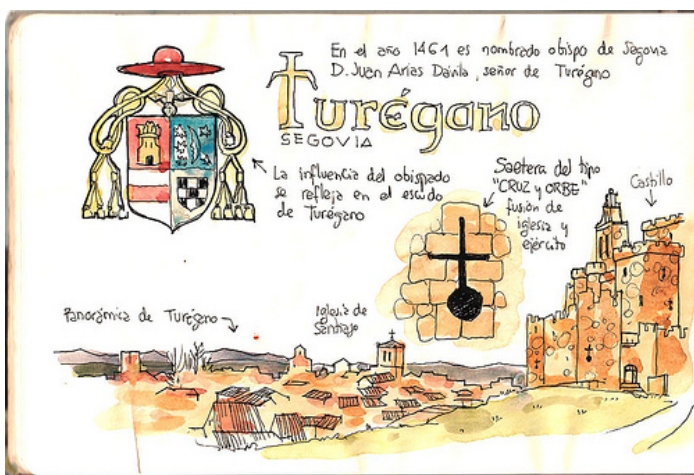 En el año 1461 es nombrado obispo de Segovia
D. Juan Arias Dávila, señor de Turégano
Turégano
SEGOVIA
La influencia del obispado
se refleja en el escudo
de Turégano
Saetera del tipo
"CRUZ y ORBE"
fusión de
iglesia y
ejército
Castillo
Panorámica de Turégano
Iglesia de
Santiago